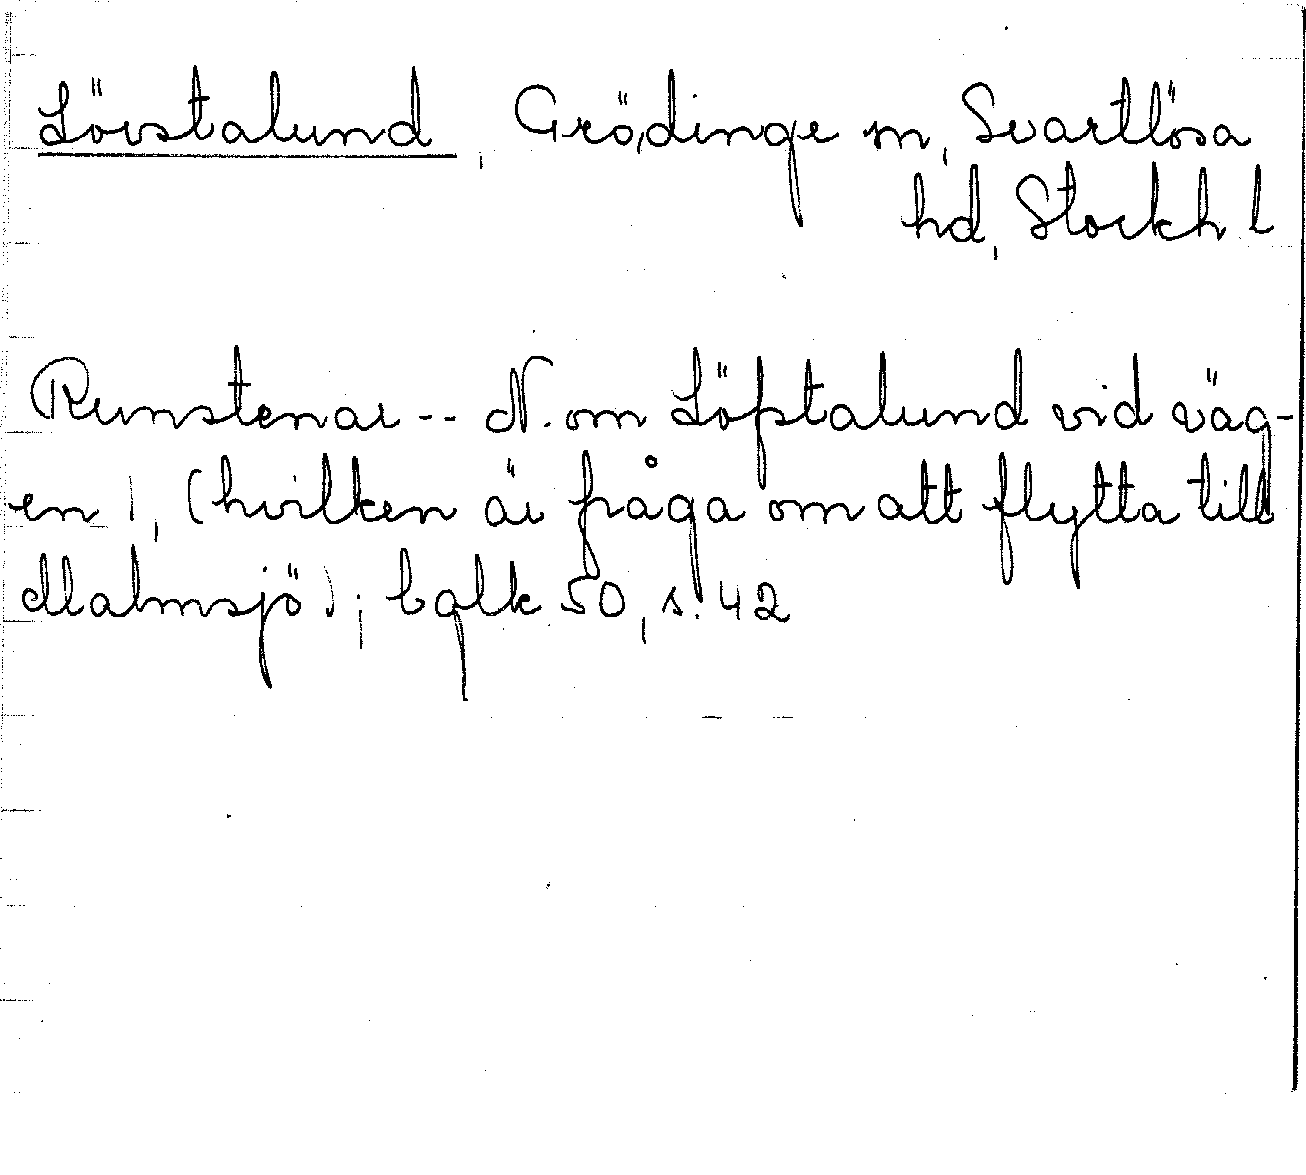 Lövstalund, Grödinge sn, Svartlösa
hd, Stockh l
Runstenar -- N. om Löfstalund vid väg-
en 1, (hvilken är fråga om att flytta till
Malmsjö); balk 50, s. 42